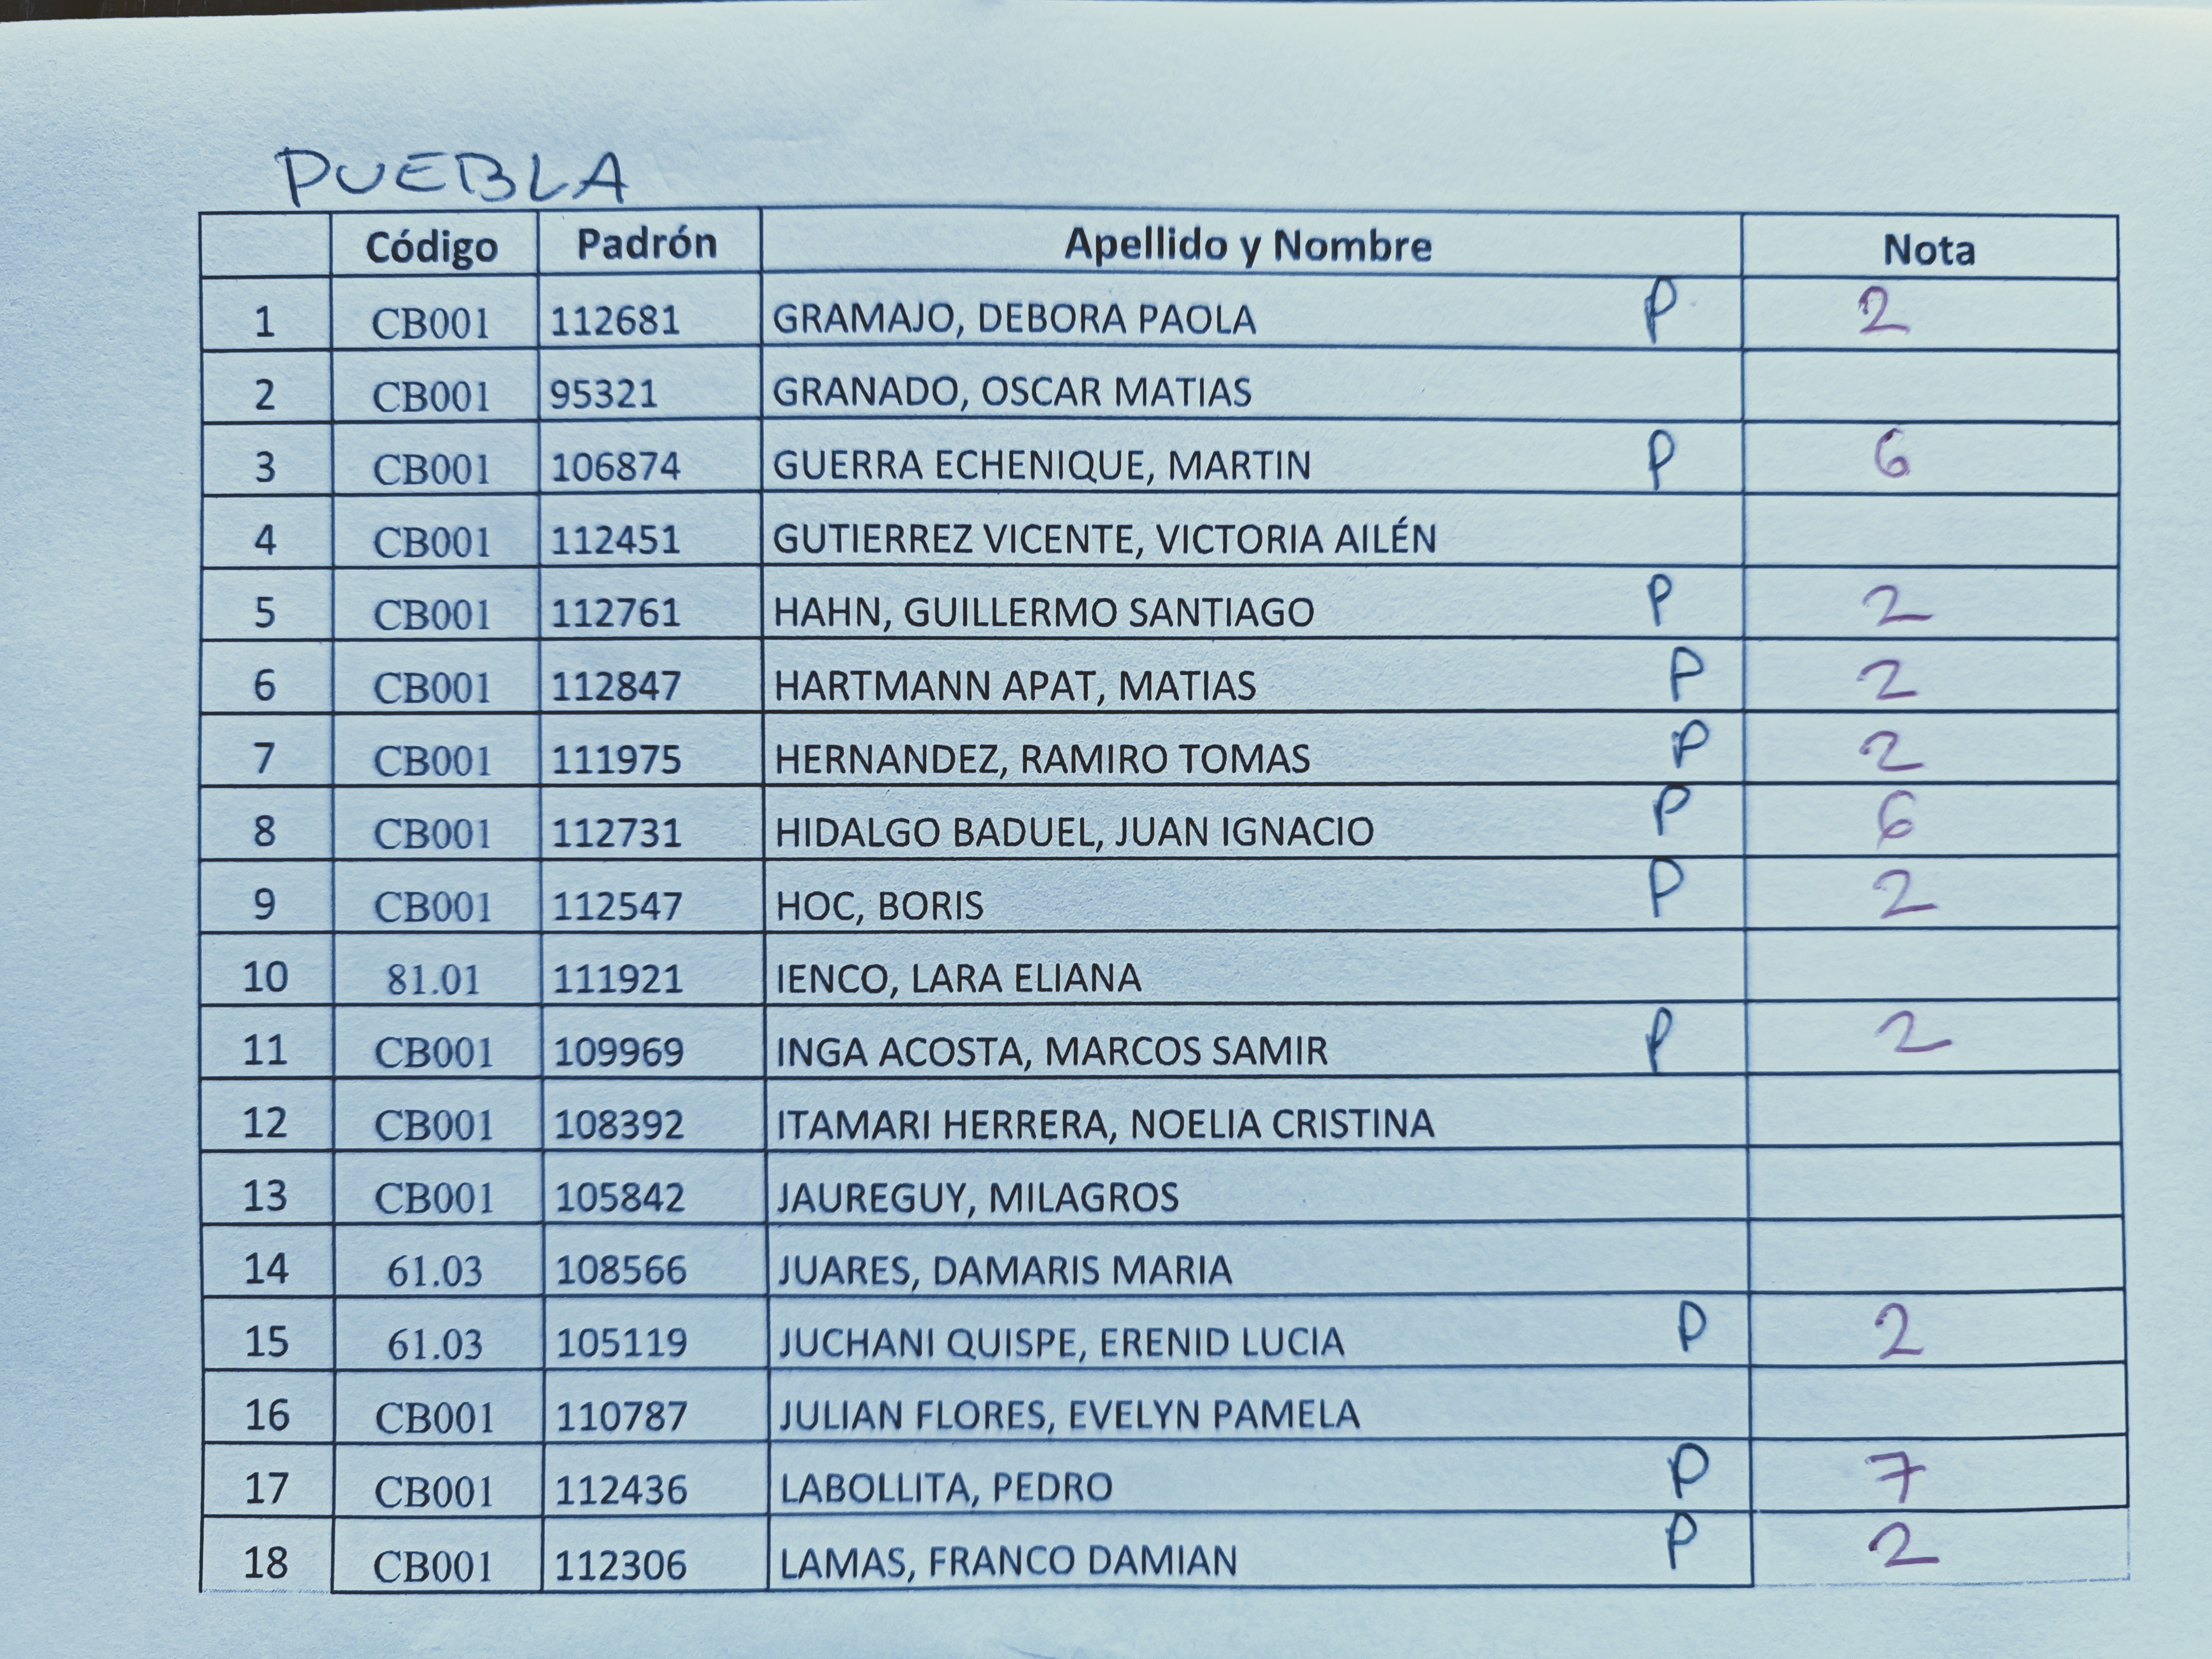 PUEBLA
Código Padrón Apellido y Nombre Nota
1 CB001 112681 GRAMAJO, DEBORA PAOLA P 2
2 CB001 95321 GRANADO, OSCAR MATIAS
3 CB001 106874 GUERRA ECHENIQUE, MARTIN P 6
4 CB001 112451 GUTIERREZ VICENTE, VICTORIA AILÉN
5 CB001 112761 HAHN, GUILLERMO SANTIAGO P 2
6 CB001 112847 HARTMANN APAT, MATIAS P 2
7 CB001 111975 HERNANDEZ, RAMIRO TOMAS P 2
8 CB001 112731 HIDALGO BADUEL, JUAN IGNACIO P 6
9 CB001 112547 HOC, BORIS P 2
10 81.01 111921 IENCO, LARA ELIANA
11 CB001 109969 INGA ACOSTA, MARCOS SAMIR P 2
12 CB001 108392 ITAMARI HERRERA, NOELIA CRISTINA
13 CB001 105842 JAUREGUY, MILAGROS
14 61.03 108566 JUARES, DAMARIS MARIA
15 61.03 105119 JUCHANI QUISPE, ERENID LUCIA P 2
16 CB001 110787 JULIAN FLORES, EVELYN PAMELA
17 CB001 112436 LABOLLITA, PEDRO P 7
18 CB001 112306 LAMAS, FRANCO DAMIAN P 2